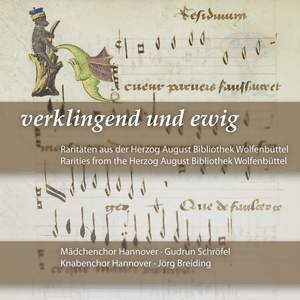 Residuum
cueur parvers faulsart et
verklingend und ewig
Raritäten aus der Herzog August Bibliothek Wolfenbüttel
Rarities from the Herzog August Bibliothek Wolfenbüttel
Que de faulcerre
Mädchenchor Hannover · Gudrun Schröfel
Knabenchor Hannover · Jörg Breiding